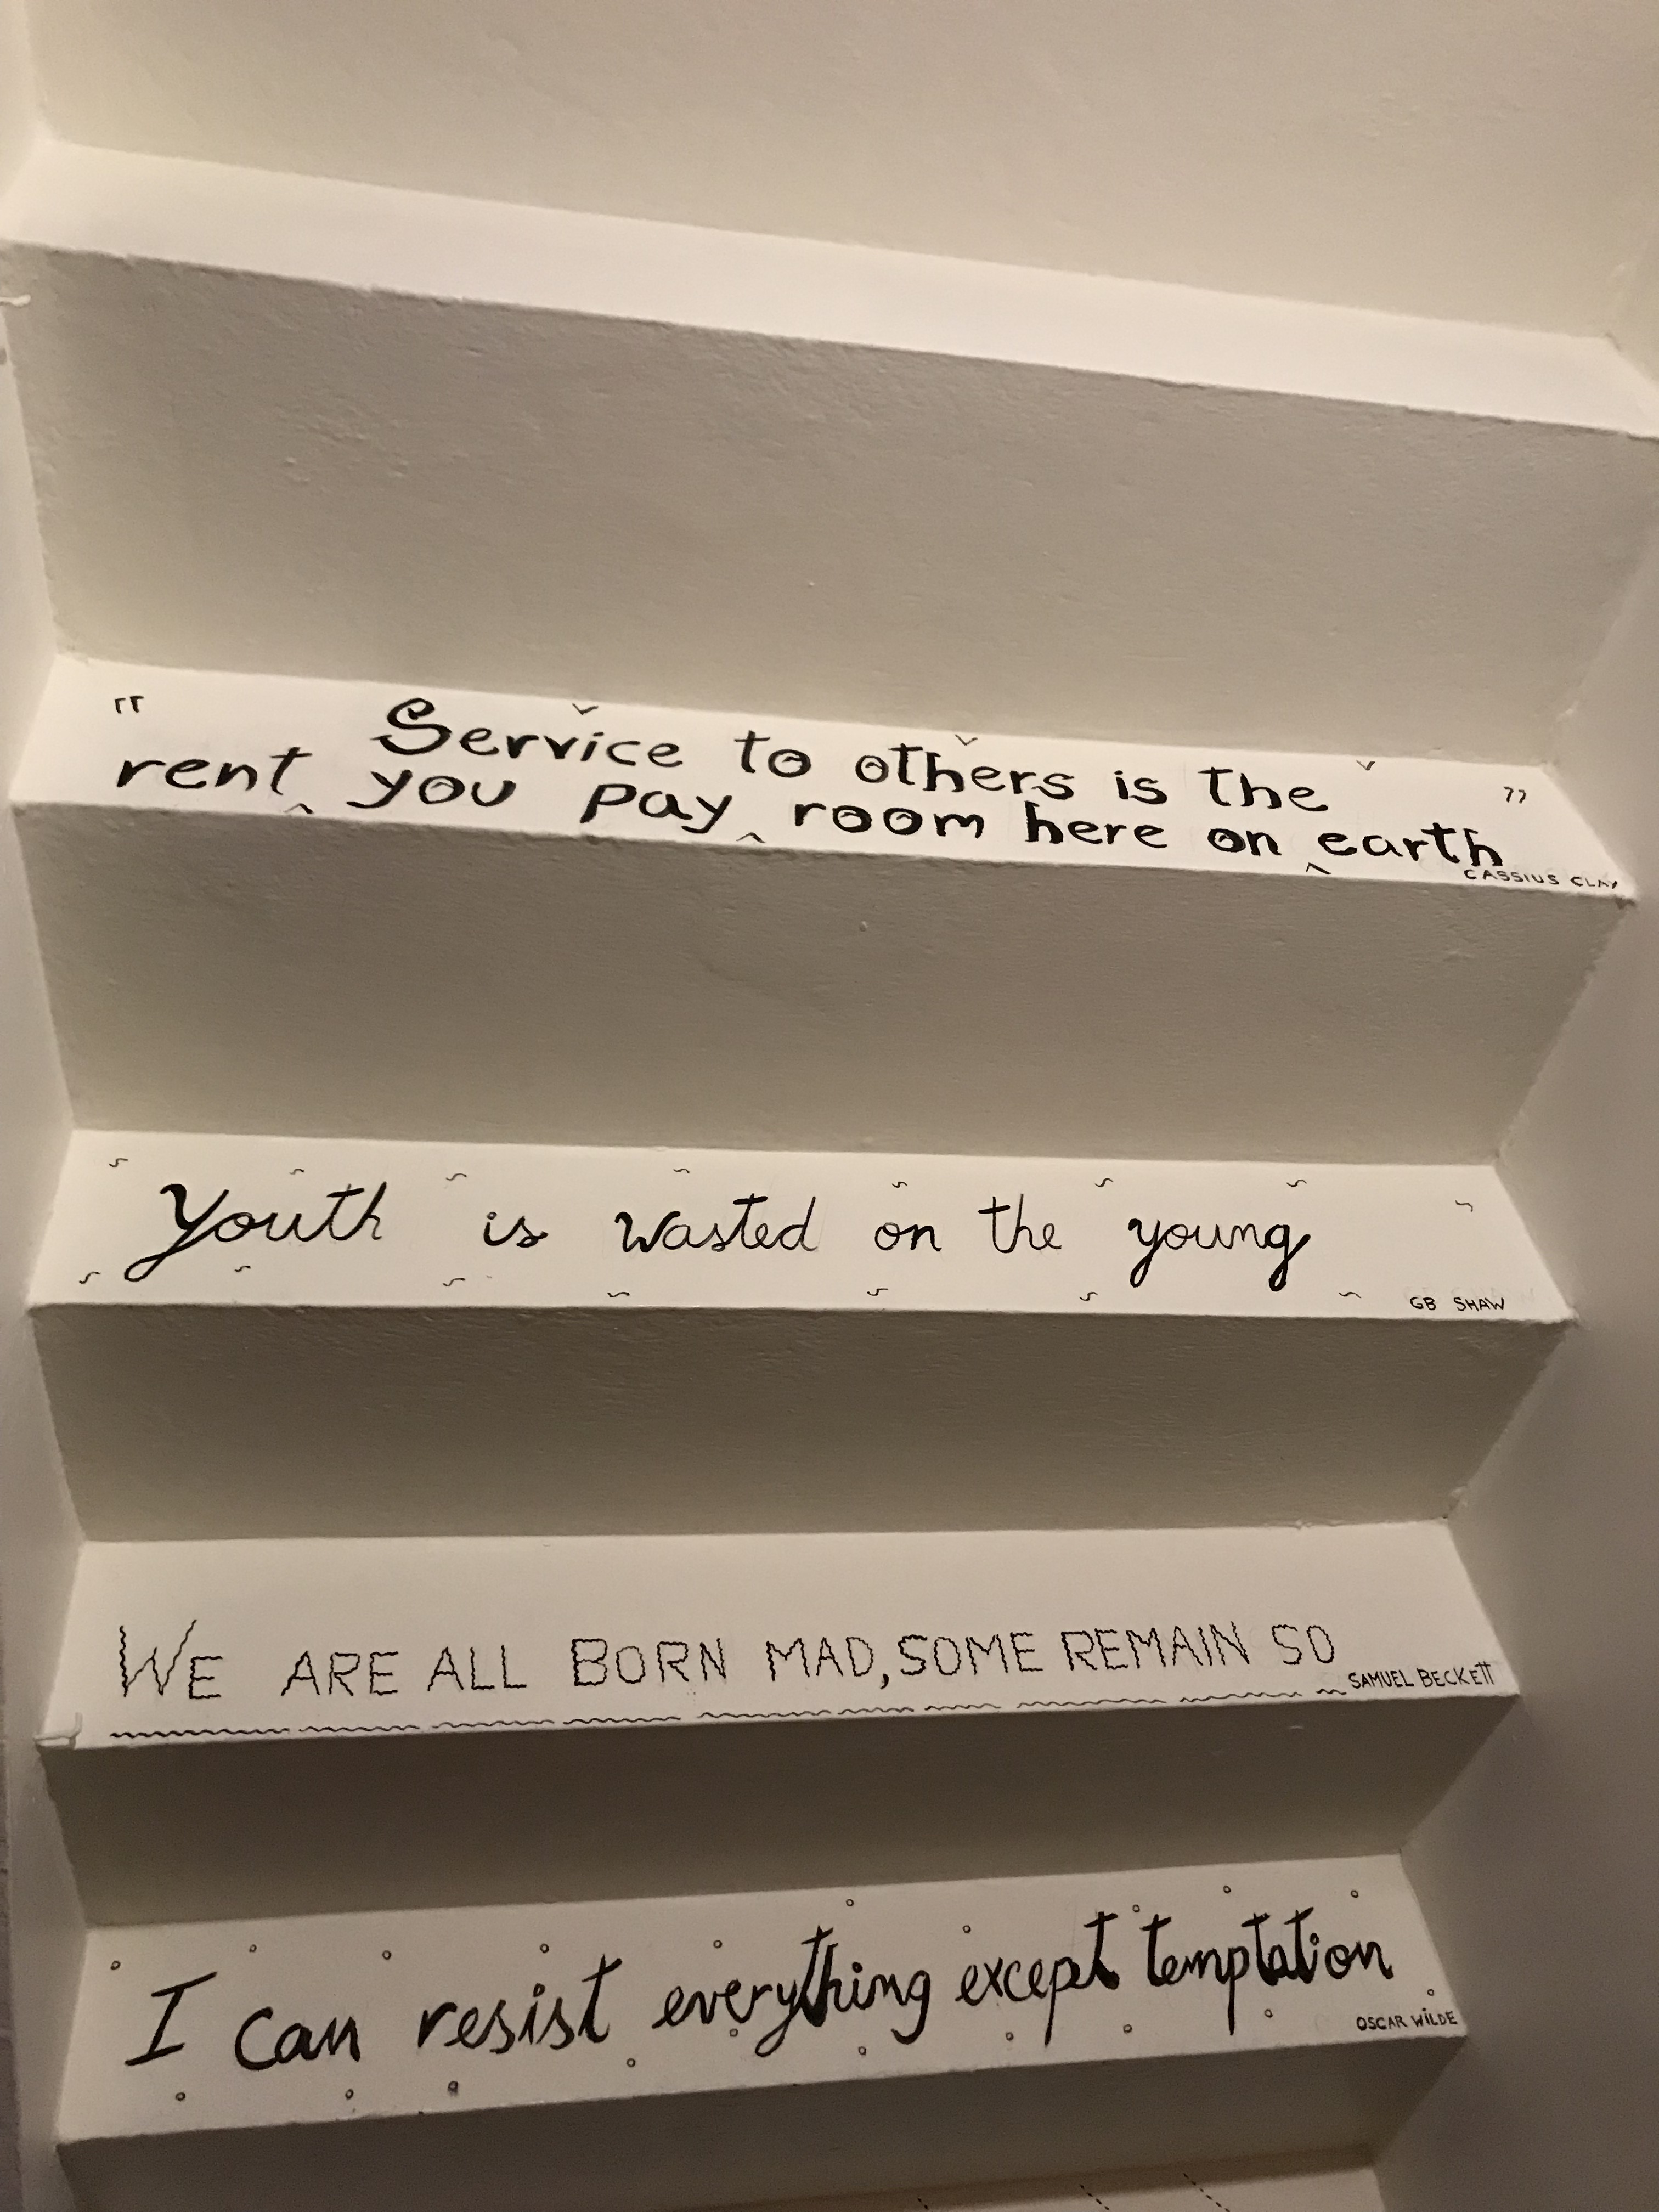 " Service to others is the "
rent you pay room here on earth
CASSIUS CLAY
Youth is wasted on the young
GB SHAW
WE ARE ALL BORN MAD, SOME REMAIN SO
SAMUEL BECKETT
I can resist everything except temptation
OSCAR WILDE